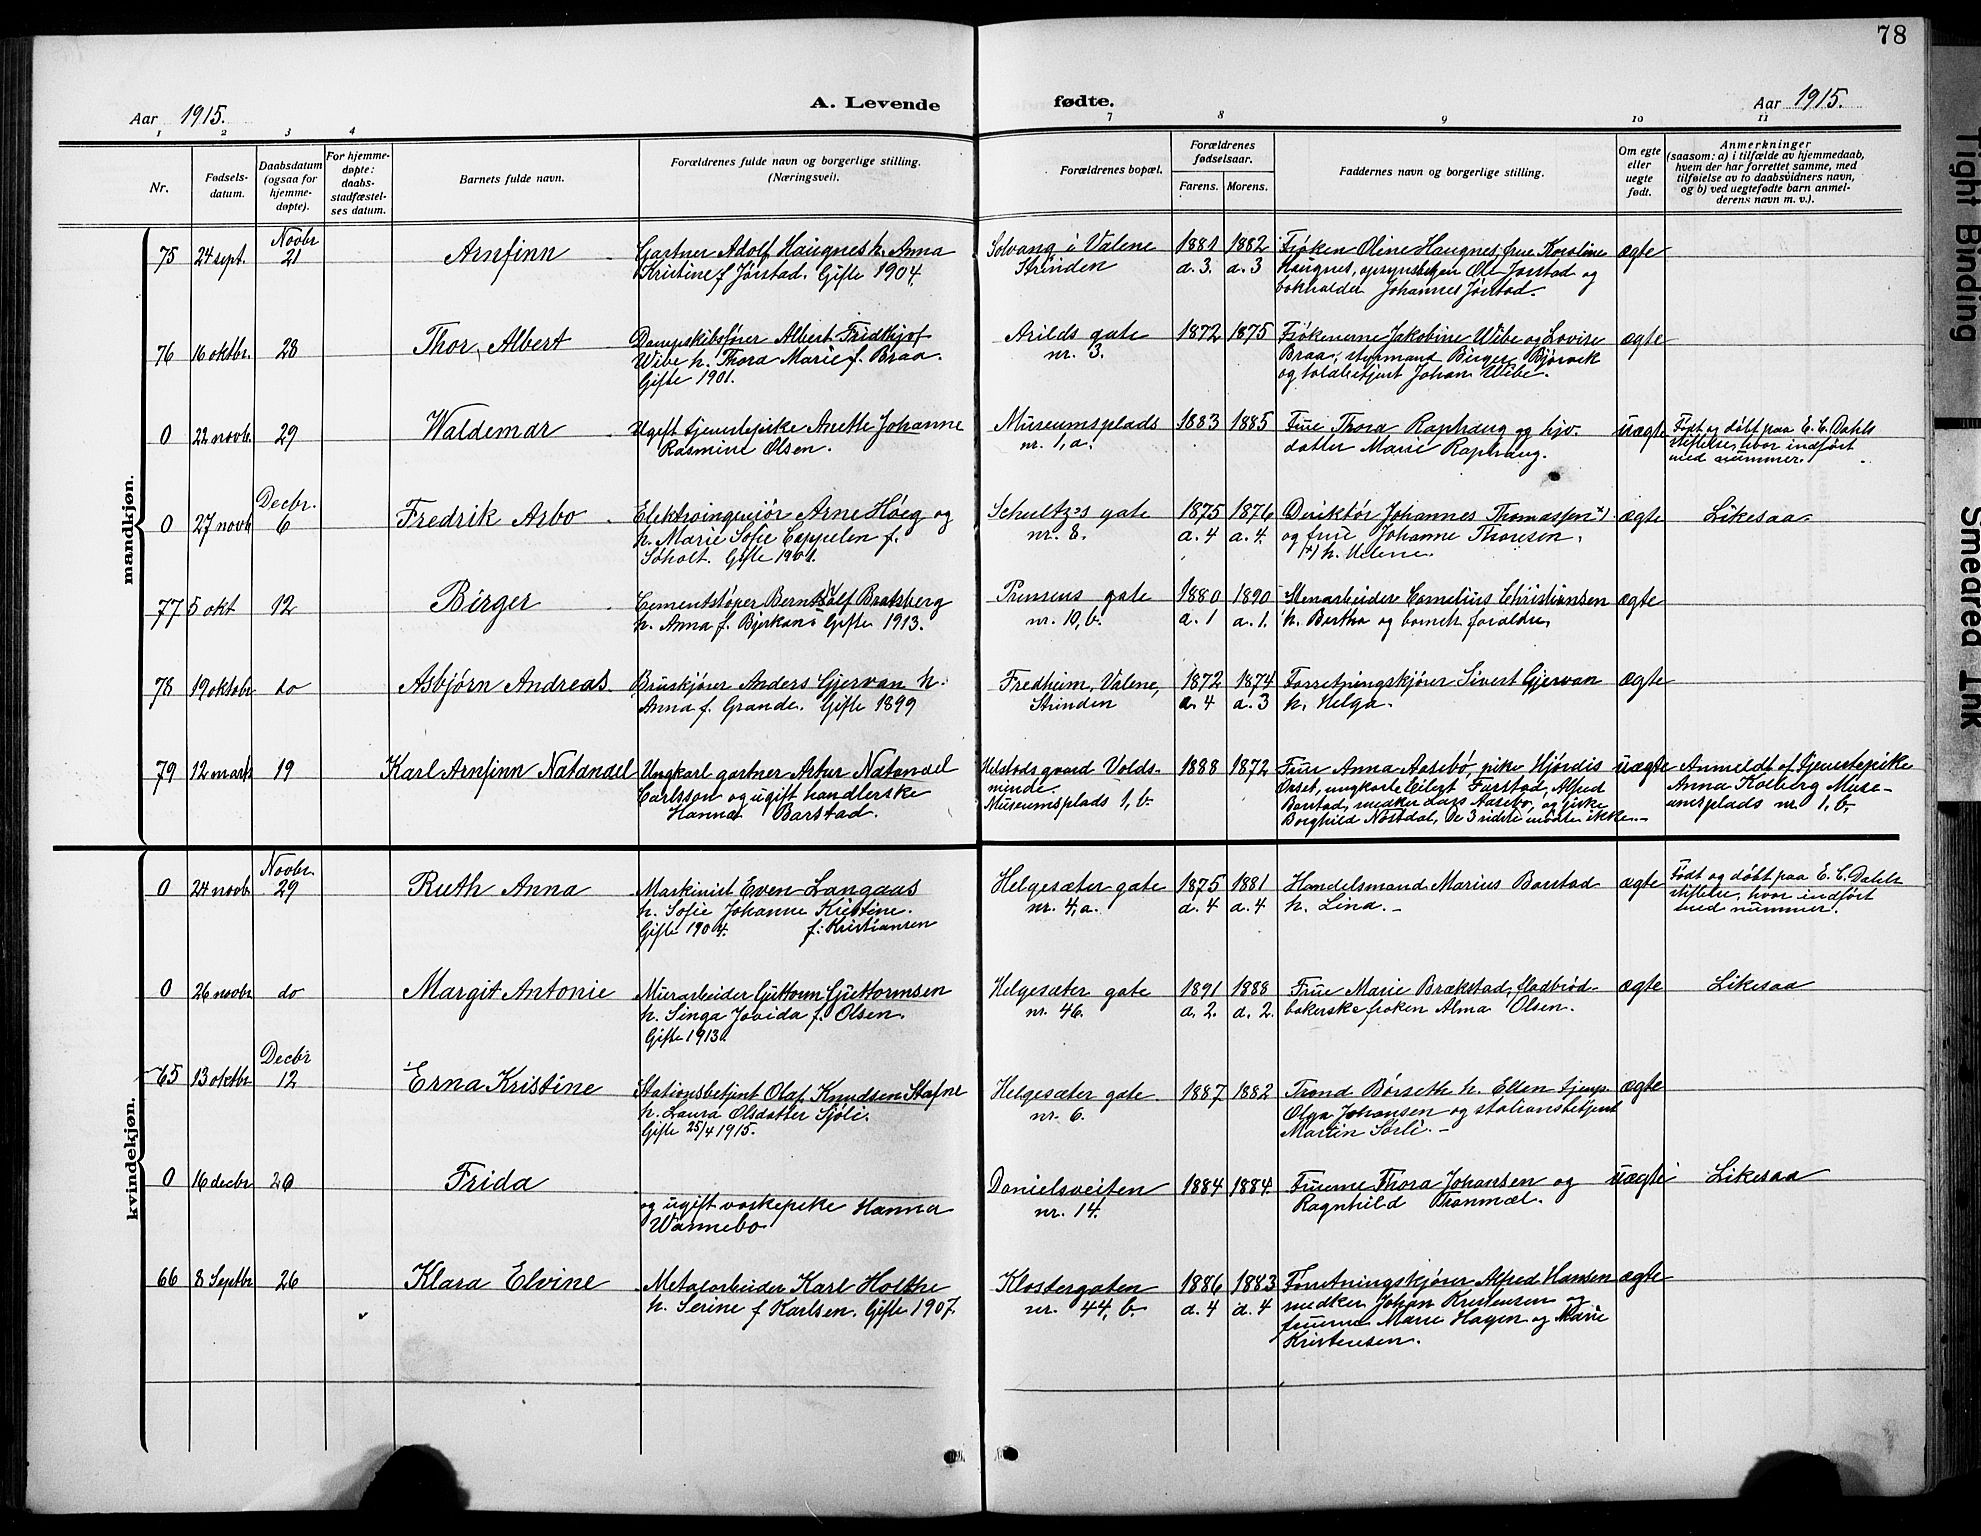 78
Aar 1915.
A. Levende fødte.
Aar 1915.
1 2 3 4 7 8 9 10 11
Nr.
Fødsels-
datum.
Daabsdatum
(ogsaa for
hjemme-
døpte).
For hjemme-
døpte:
daabs-
stadfæstel-
ses datum.
Barnets fulde navn.
Forældrenes fulde navn og borgerlige stilling.
(Næringsvei).
Forældrenes bopæl.
Forældrenes
fødselsaar.
Farens. Morens.
Faddernes navn og borgerlige stilling.
Om egte
eller
uegte
født.
Anmerkninger
(saasom: a) i tilfælde av hjemmedaab,
hvem der har forrettet samme, med
tilføielse av to daabsvidners navn,
og b) ved uegtefødte barn anmel-
derens navn m. v.).
mandkjøn.
75 24 sept. Novbr. 21 Arnfinn
Gartner Adolf Haugnes h. Anna
Kristine f. Jørstad. Gifte 1904.
Solvang i Valene
Strinden
1881 1882
a. 3. a. 3
Frøken Oline Haugnes, frue Karoline
Haugnes, Ole Jørstad og
bokholder Johannes Jørstad.
ægte
76 16 oktbr. 28 Thor, Albert
Dampskibsfører Albert Fridthjof
Wibe h. Thora Marie f. Braa.
Gifte 1901.
Arilds gate
nr. 3.
1872 1875
Frøkenerne Jakobine Wibe og Lovise
Braa, styrmand Birger Bjørvik
og toldbetjent Johan Wibe.
ægte
0 22 novb. 29 Waldemar
Ugift tjenestepike Anette Johanne
Rasmine Olsen.
Museumsplads
nr. 1, a.
1883 1885
Frue Thora Raphaug og hjv.
datter Marie Raphaug.
uægte
Født og døbt paa E. C. Dahls
stiftelse, hvor indført
med nummer.
0 27 novb. Decbr. 6 Fredrik Arbo
Elektroingeniør Arne Høeg og
h. Marie Sofie Cappelen f.
Søholt. Gifte 1901.
Schultz's gate
nr. 8.
1875 1876
a. 4 a. 4.
Direktør Johannes Thomassen x)
og frue Johanne Thoresen.
x) h. Helene.
ægte Likesaa.
77 5 okt 12 Birger
Cementstøper Bernt Adolf Bratsberg
h. Anna f. Bjerkan. Gifte 1913.
Prinsens gate
nr. 10, b.
1880 1890
a. 1 a. 1.
Stenarbeider Cornelius Christiansen
h. Bertha og barnets forældre.
ægte
78 19 oktobr do Asbjørn Andreas
Bruskjører Anders Gjervan h.
Anna f. Grande. Gifte 1899
Fredheim, Valene,
Strinden
1872 1874
a. 4 a. 3
Forretningskjører Sivert Gjervan
h. Helga.
ægte
79 12 mars 19 Karl Arnfinn Natanael
Ungkarl gartner Artur Natanael
Carlsson og ugift handlerske
Hanna Barstad.
gaard Volds-
minde.
Museumsplads 1, b.
1888 1872
Frue Anna Aasebø, pike Hjørdis
Orset, ungkarle Furstad, Alfred
Barstad, medker Lars Aasebø, og pike
Borghild Nøstdal, De 3 sidste mødte ikke.
uægte
Anmeldt af tjenestepike
Anna Kolberg Muse-
umsplads nr. 1, b.
kvindekjøn.
0 24 novbr Novbr. 29 Ruth Anna
Maskinist Even Langaas
h. Sofie Johanne Kristine.
Gifte 1904. f. Kristiansen
Helgesæter gate
nr. 4, a.
1875 1881
a. 4 a. 4
Handelsmand Marius Barstad
h. Lina.
ægte
Født og døbt paa E. C. Dahls
stiftelse, hvor indført
med nummer.
0 26 novbr do Margit Antonie
Murarbeider Guttorm Guttormsen
h. Singa Jovida f. Olsen.
Gifte 1913.
Helgesæter gate
nr. 46.
1891 1888
a. 2. a. 2.
Frue Marie Brækstad, fladbrød-
bakerske frøken Alma Olsen.
ægte Likesaa
65 13 oktbr Decbr 12 Erna Kristine
Stationsbetjent Olaf Knudsen Stafne
h. Laura Olsdatter Sjøli.
Gifte 25/4 1915.
Helgesæter gate
nr. 6.
1887 1882
Trond Børseth h. Ellen tjenp.
Olga Johansen og stationsbetjent
Martin Sørli.
ægte
0 16 decbr 26 Frida
og ugift vaskepike Hanna
Wannebo
Danielsveiten
nr. 14.
1884 1884
Fruerne Thora Johansen og
Ragnhild Tranmæl.
uægte Likesaa
66 8 Septbr 26 Klara Elvine
Metalarbeider Karl Holthe
h. Serine f. Karlsen. Gifte 1907.
Klostergaten
nr. 44, b.
1886 1883
a. 4 a. 4
Forretningskjører Alfred Hansen
medker Johan Kristensen og
fruerne Marie Hagen og Marie
Kristensen.
ægte
Tight Binding
Smeared Ink